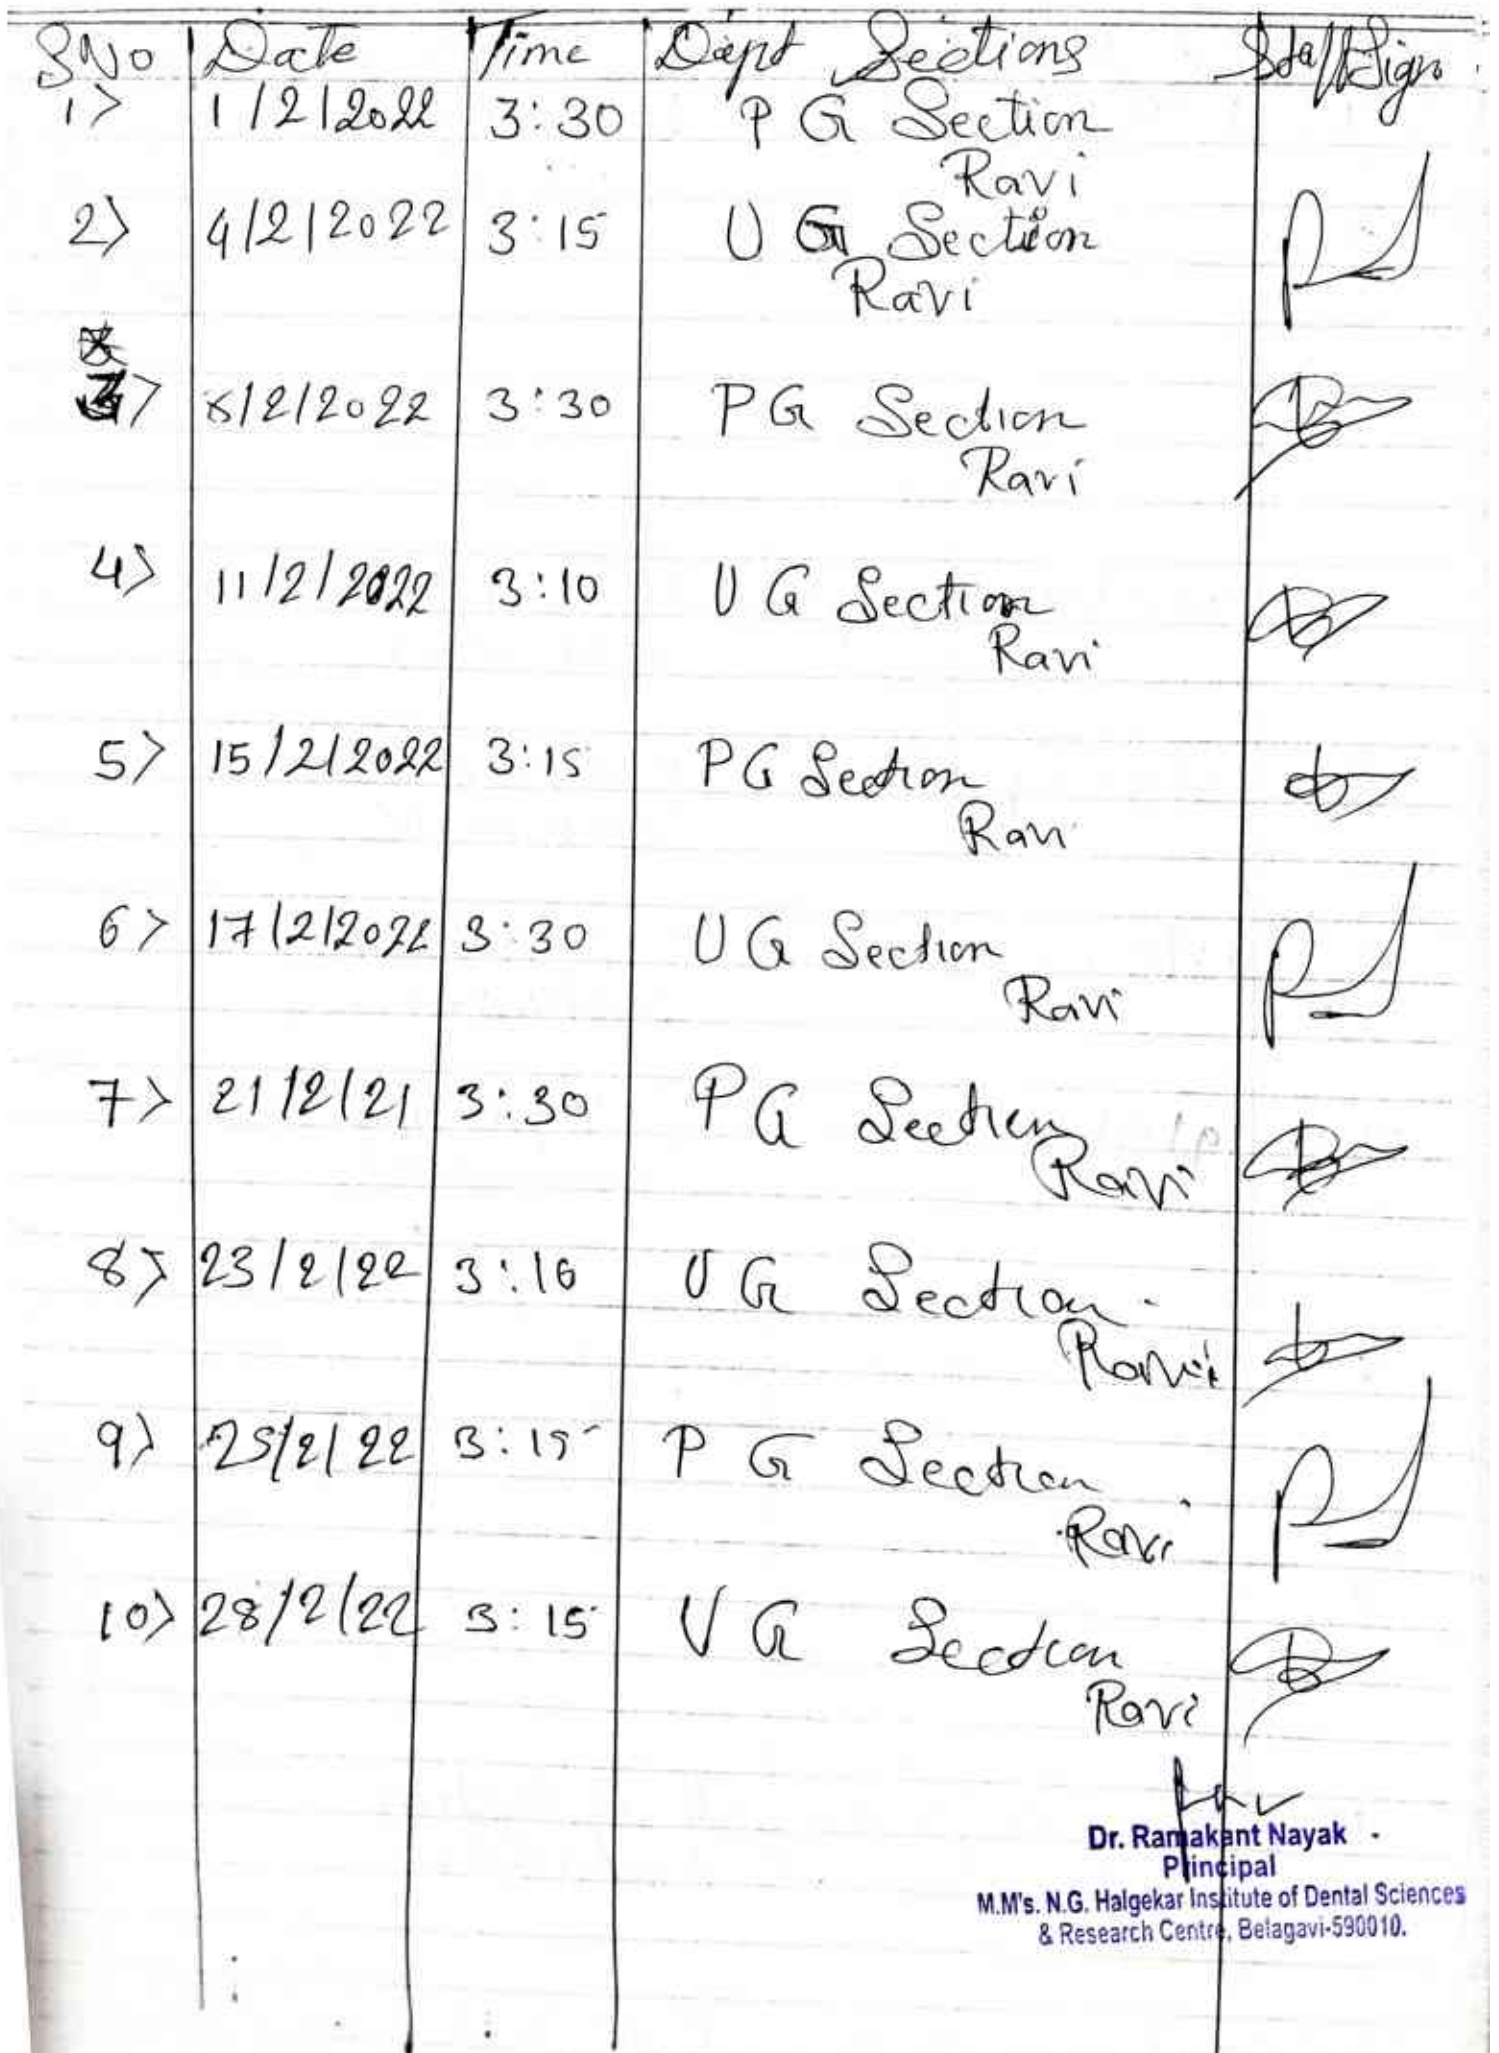 SNo Date Time Dept Sections Staff Sign
1> 1/2/2022 3:30 PG Section
Ravi
2> 4/2/2022 3:15 UG Section
Ravi
3> 8/2/2022 3:30 PG Section
Ravi
4> 11/2/2022 3:10 UG Section
Ravi
5> 15/2/2022 3:15 PG Section
Ravi
6> 17/2/2022 3:30 UG Section
Ravi
7> 21/2/21 3:30 PG Section
Ravi
8> 23/2/22 3:10 UG Section
Ravi
9> 25/2/22 3:15 PG Section
Ravi
10> 28/2/22 3:15 UG Section
Ravi
Dr. Ramakant Nayak
Principal
M.M's. N.G. Halgekar Institute of Dental Sciences
& Research Centre, Belagavi-590010.